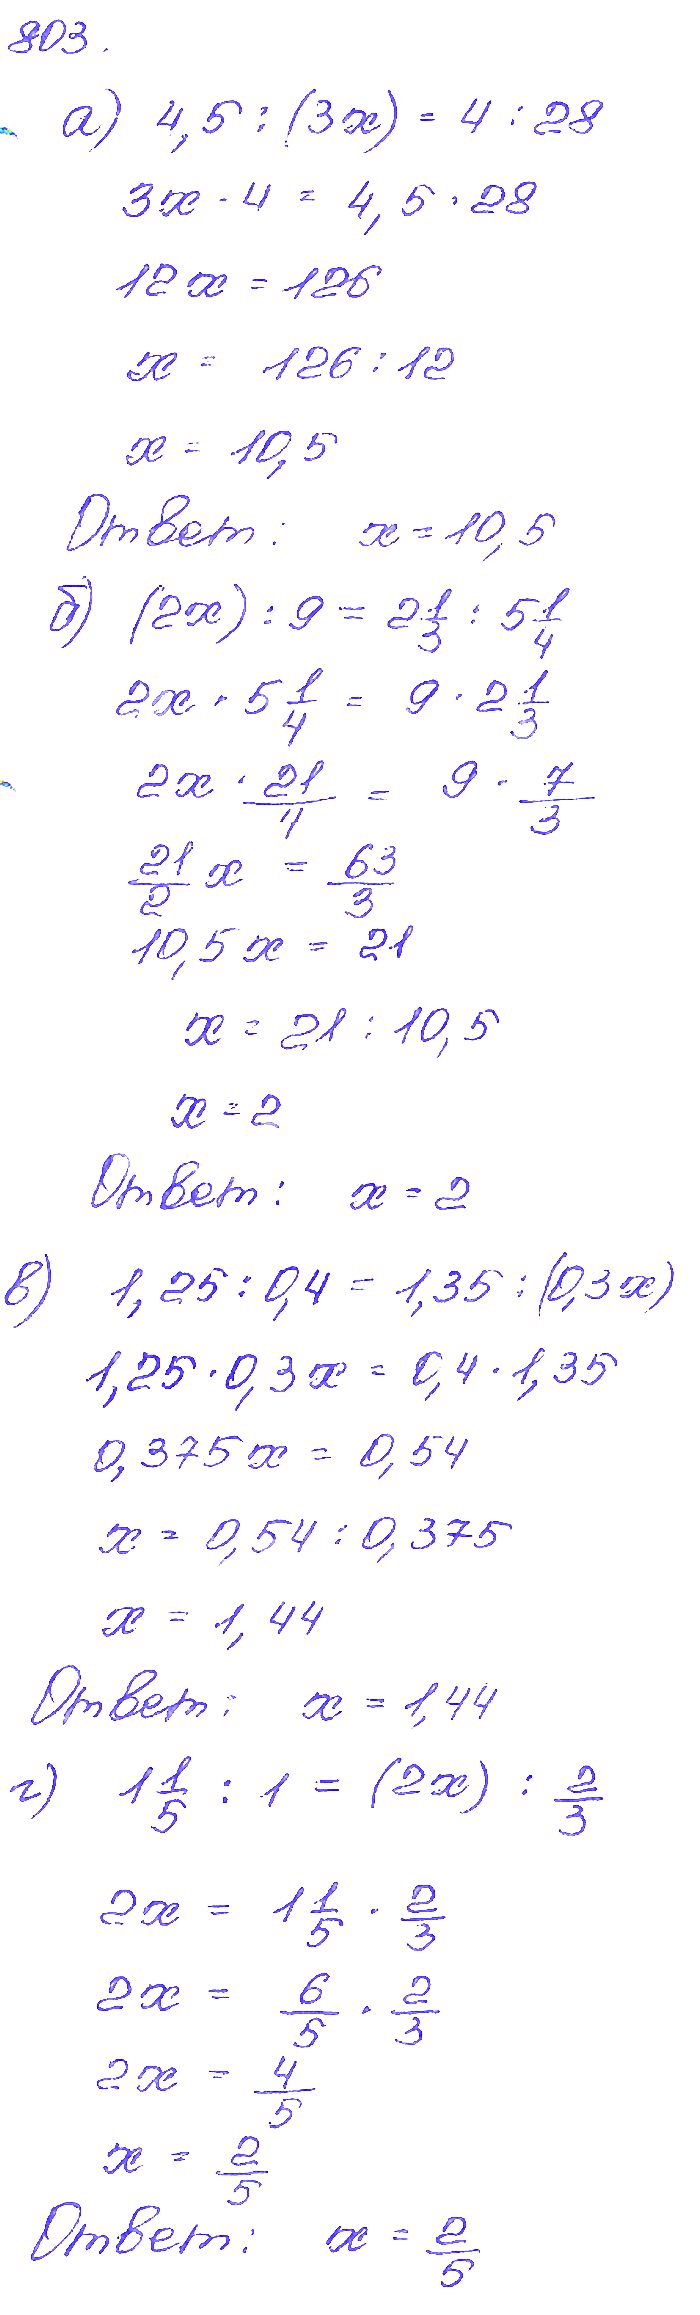 803.
а) 4,5 : (3x) = 4 : 28
3x · 4 = 4,5 · 28
12x = 126
x = 126 : 12
x = 10,5
Ответ: x = 10,5
б) (2x) : 9 = 2 1/3 : 5 1/4
2x · 5 1/4 = 9 · 2 1/3
2x · 21/4 = 9 · 7/3
21/2 x = 63/3
10,5x = 21
x = 21 : 10,5
x = 2
Ответ: x = 2
в) 1,25 : 0,4 = 1,35 : (0,3x)
1,25 · 0,3x = 0,4 · 1,35
0,375x = 0,54
x = 0,54 : 0,375
x = 1,44
Ответ: x = 1,44
г) 1 1/5 : 1 = (2x) : 2/3
2x = 1 1/5 · 2/3
2x = 6/5 · 2/3
2x = 4/5
x = 2/5
Ответ: x = 2/5